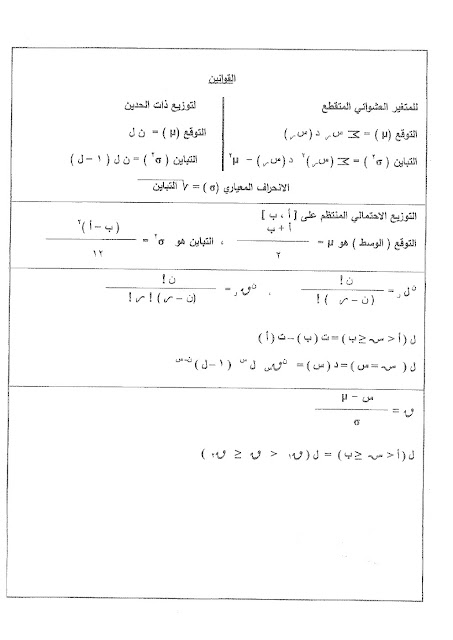 القوانين
للمتغير العشوائي المتقطع
لتوزيع ذات الحدين
التوقع (μ) = Σ سر د(سر)
التوقع (μ) = ن ل
التباين (σ²) = Σ (سر)² د(سر) − μ²
التباين (σ²) = ن ل (١ − ل)
الانحراف المعياري (σ) = √ التباين
التوزيع الاحتمالي المنتظم على [أ ، ب]
التوقع (الوسط) هو μ = (أ + ب) / ٢ ، التباين هو σ² = (ب − أ)² / ١٢
نلر = ن! / (ن − ر)! ، نقر = ن! / (ن − ر)! ر!
ل (أ < سـ ≤ ب) = ت (ب) − ت (أ)
ل (سـ = س) = د (س) = نقس ل^س (١ − ل)^ن−س
ق = (س − μ) / σ
ل (أ < سـ ≤ ب) = ل (ق١ < ق ≤ ق٢)